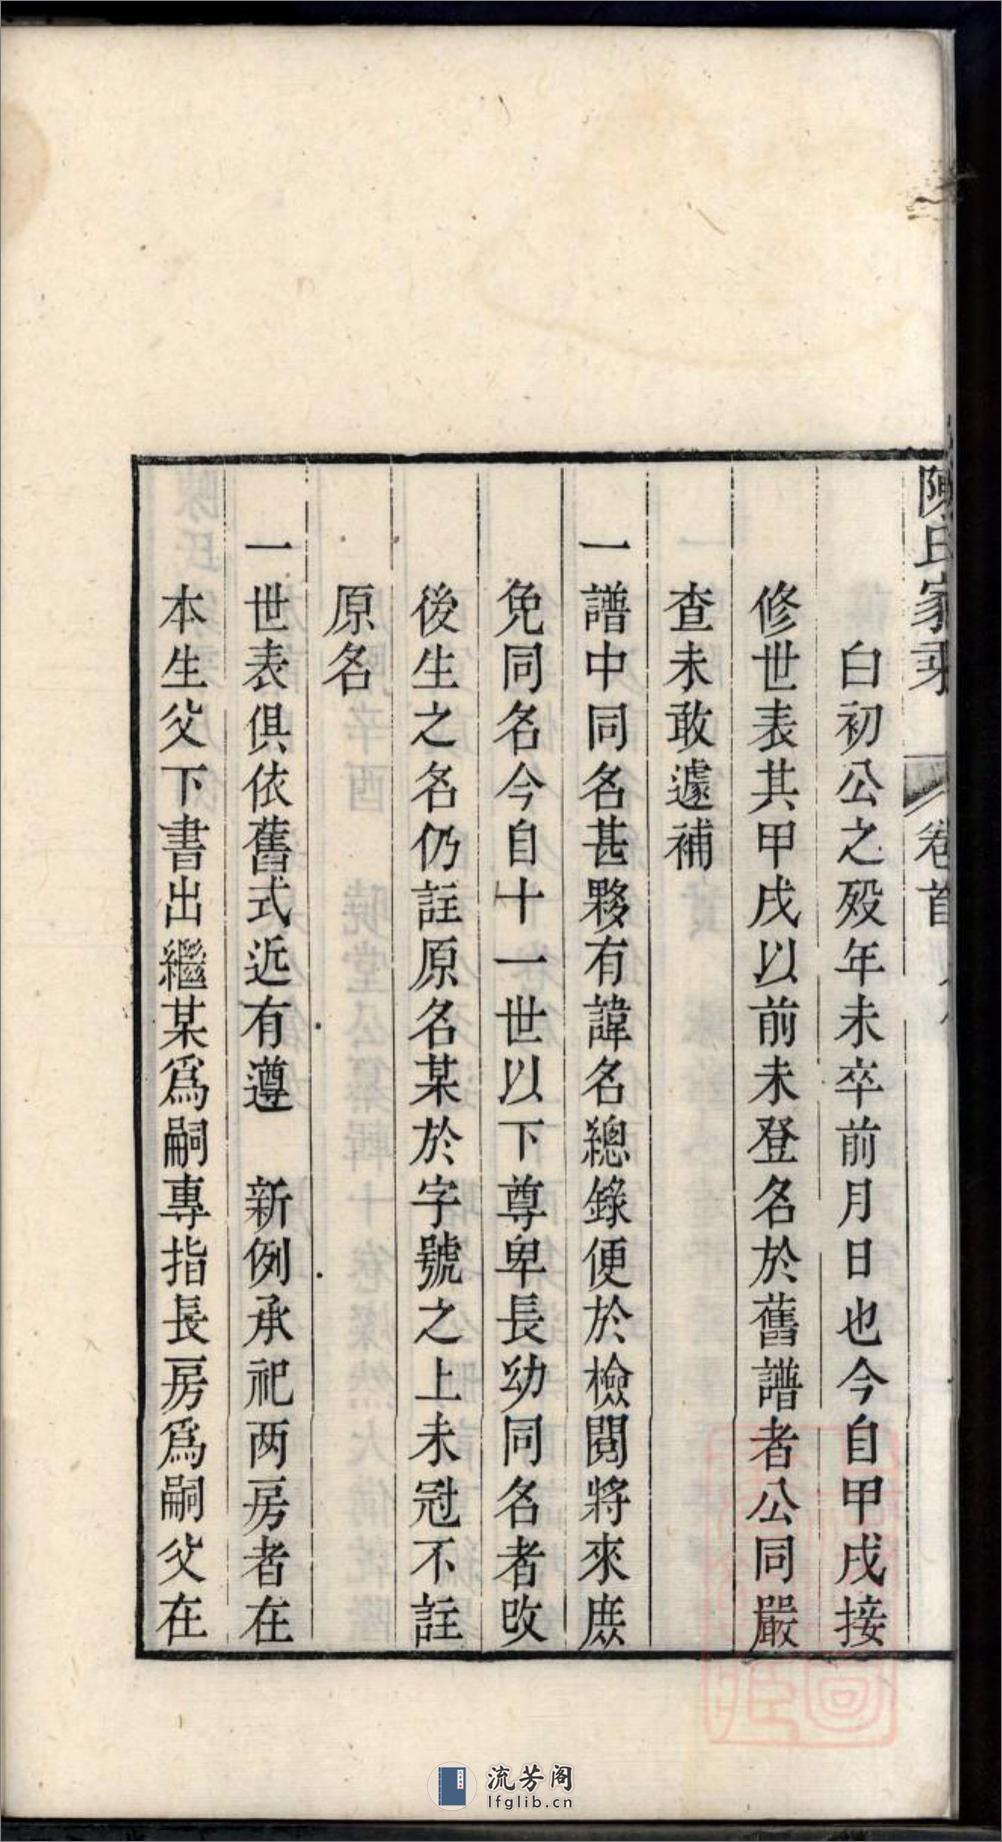 陳氏家乘 卷首
白初公之歿年未卒前月日也今自甲戌接
修世表其甲戌以前未登名於舊譜者公同嚴
查未敢遽補
一譜中同名甚夥有諱名總錄便於檢閱將來庶
免同名今自十一世以下尊卑長幼同名者改
後生之名仍註原名某於字號之上未冠不註
原名
一世表俱依舊式近有遵　新例承祀两房者在
本生父下書出繼某爲嗣專指長房爲嗣父在
流芳阁
lfglib.cn